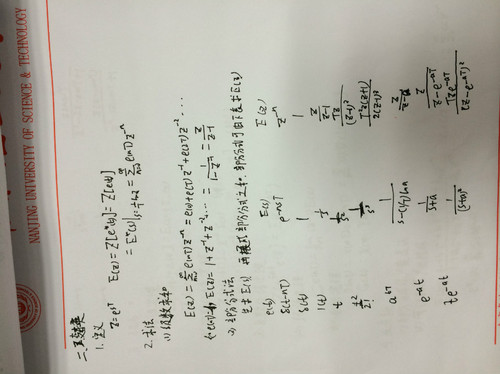 NANJING UNIVERSITY OF SCIENCE & TECHNOLOGY
二、Z变换
1. 定义
Z=e^{sT} E(z)=Z[e*(t)]=Z[e(t)]
=E*(s)|_{s=\frac{1}{T}lnz}=\sum_{n=0}^{∞}e(nT)z^{-n}
2. 求法
(1) 级数求和
E(z)=\sum_{n=0}^{∞}e(nT)z^{-n}=e(0)+e(T)z^{-1}+e(2T)z^{-2}...
E(z)=1+z^{-1}+z^{-2}...=\frac{1}{1-z^{-1}}=\frac{z}{z-1}
(2) 部分分式法
先求E(s), 再展成部分分式之和, 部分分式可由下表求E(z)
e(t) E(s) E(z)
δ(t-nT) e^{-nsT} z^{-n}
δ(t) 1 1
1(t) \frac{1}{s} \frac{z}{z-1}
t \frac{1}{s^2} \frac{Tz}{(z-1)^2}
\frac{t^2}{2!} \frac{1}{s^3} \frac{T^2z(z+1)}{2(z-1)^3}
a^{t/T} \frac{1}{s-(1/T)lna} \frac{z}{z-a}
e^{-at} \frac{1}{s+a} \frac{z}{z-e^{-aT}}
te^{-at} \frac{1}{(s+a)^2} \frac{Tze^{-aT}}{(z-e^{-aT})^2}